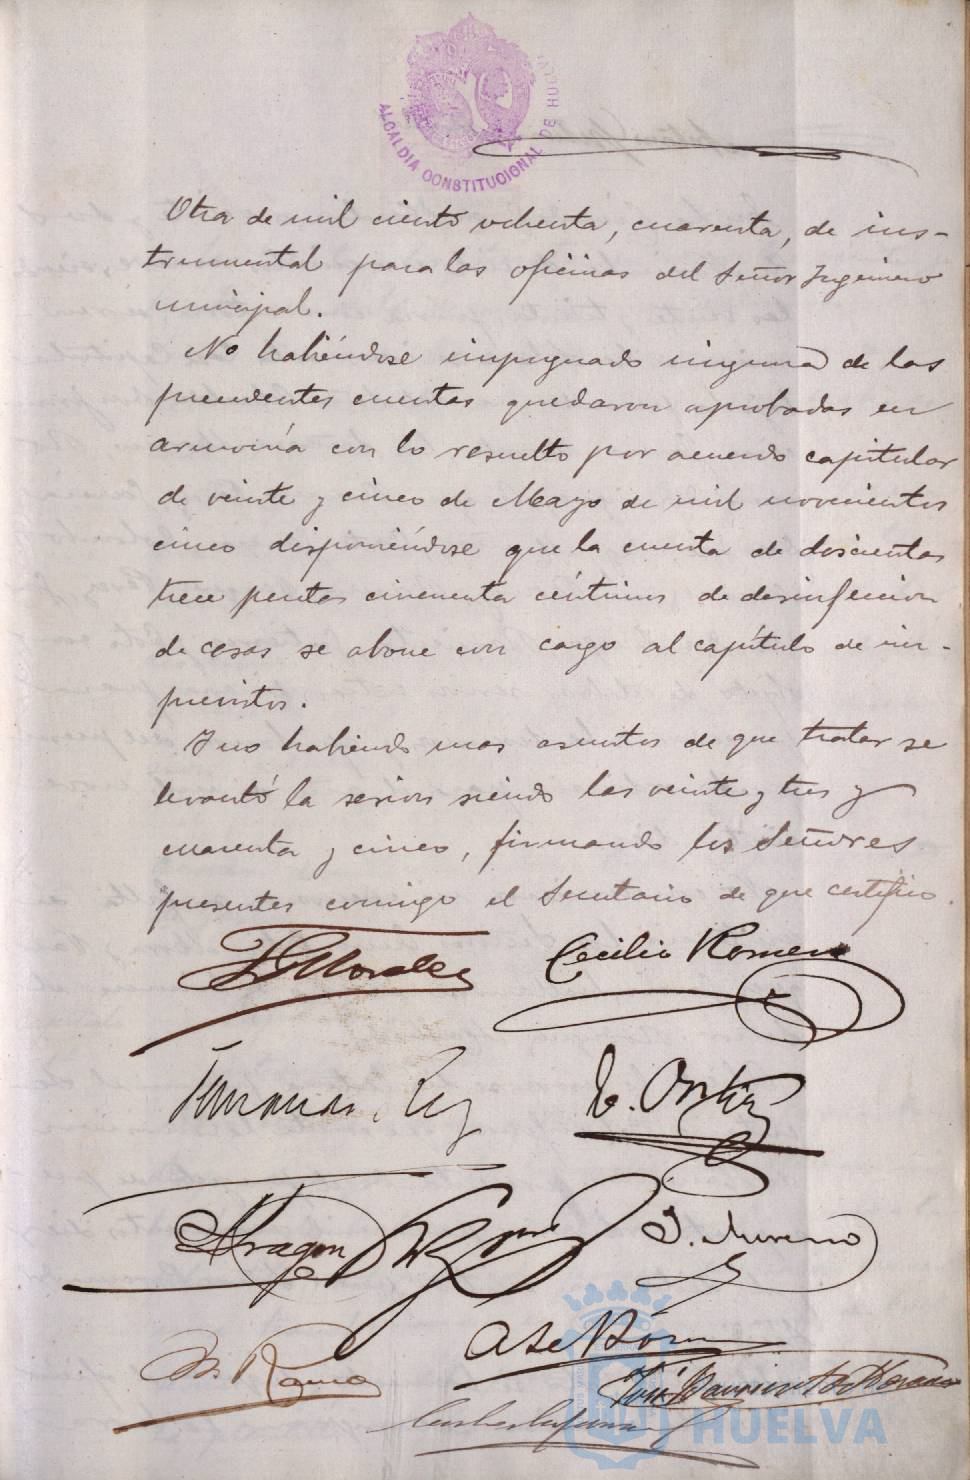 ALCALDIA CONSTITUCIONAL DE HUELVA
Otra de mil ciento ochenta, cuarenta, de ins-
trumental para las oficinas del Señor Ingeniero
municipal.
No habiéndose impugnado ninguna de las
precedentes cuentas quedaron aprobadas en
armonía con lo resuelto por acuerdo capitular
de veinte y cinco de Mayo de mil novecientos
cinco disponiéndose que la cuenta de doscientas
trece pesetas cincuenta céntimos de desinfeccion
de casas se abone con cargo al capítulo de im-
previstos.
Y no habiendo mas asuntos de que tratar se
levantó la sesion siendo las veinte y tres y
cuarenta y cinco, firmando los Señores
presentes conmigo el Secretario de que certifico.
Morales
Cecilio Romero
Aragon
J. Moreno
José
HUELVA